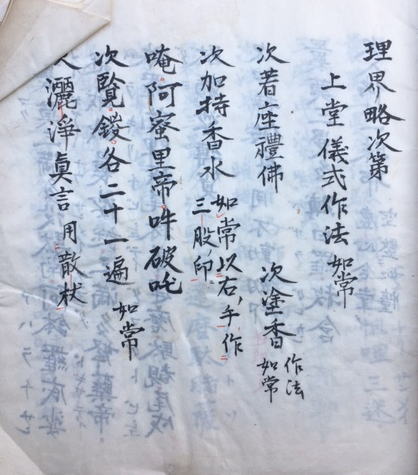 理界略次第
上堂儀式作法如常
次著座禮佛 次塗香作法如常
次加持香水如常以右手作三股印
唵阿蜜里帝吽破吒
次覽鑁各二十一遍如常
次灑淨真言用散杖